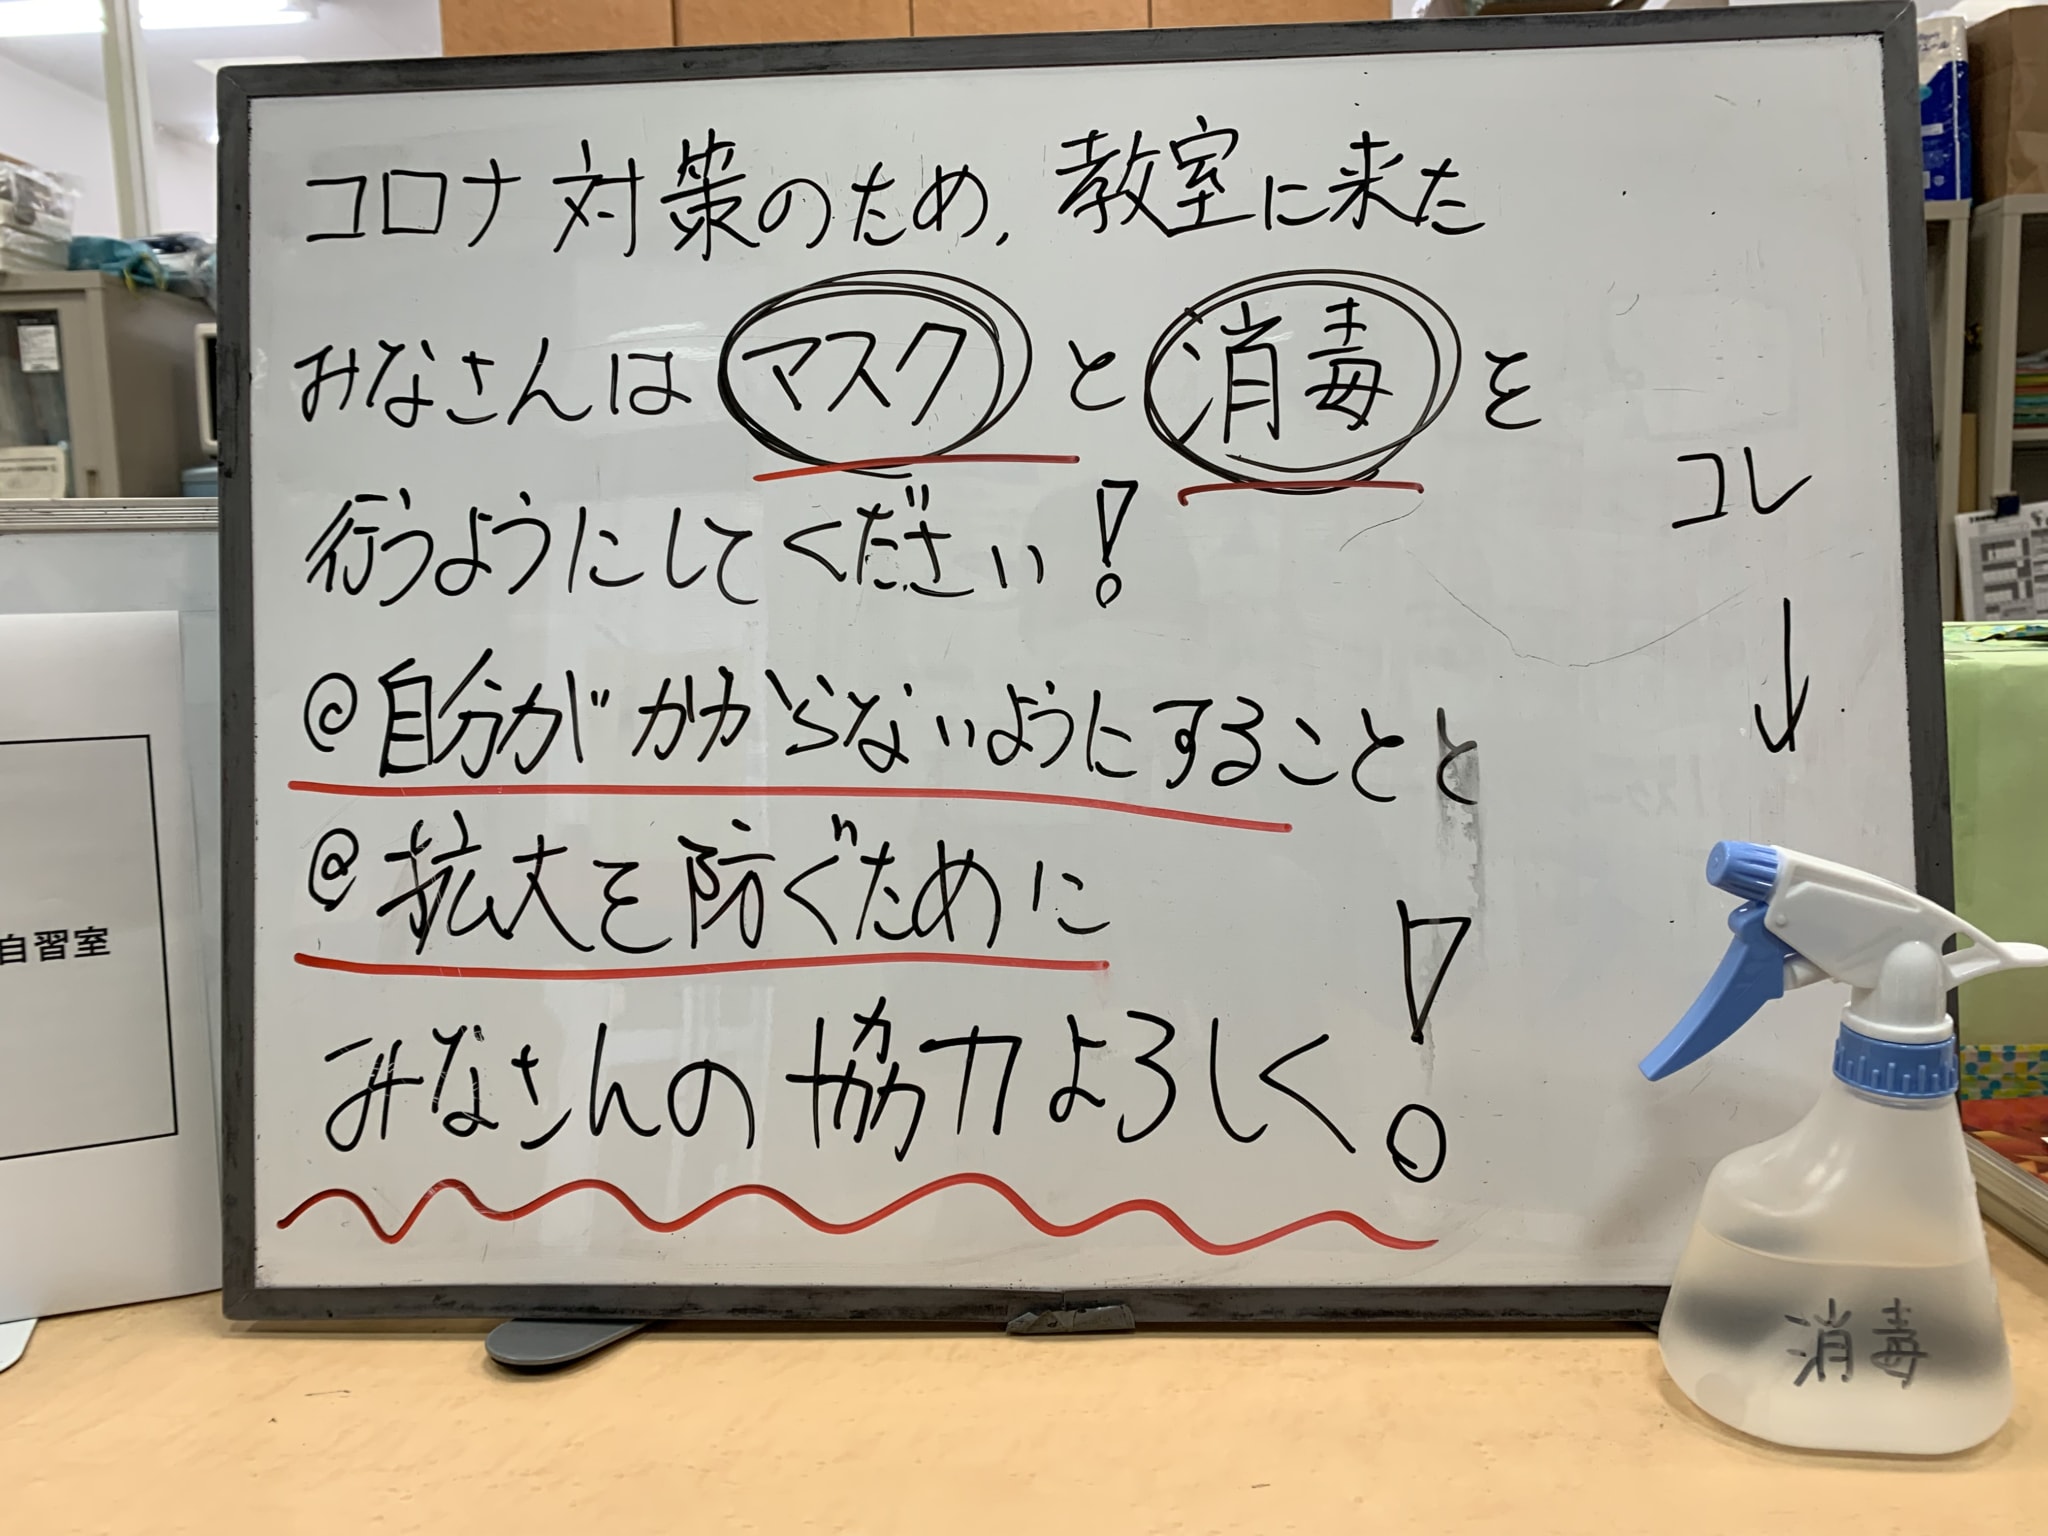 コロナ対策のため、教室に来た
みなさんはマスクと消毒を
行うようにしてください!
コレ
↓
@自分がかからないようにすることと
@拡大を防ぐために
みなさんの協力よろしく!
消毒
自習室